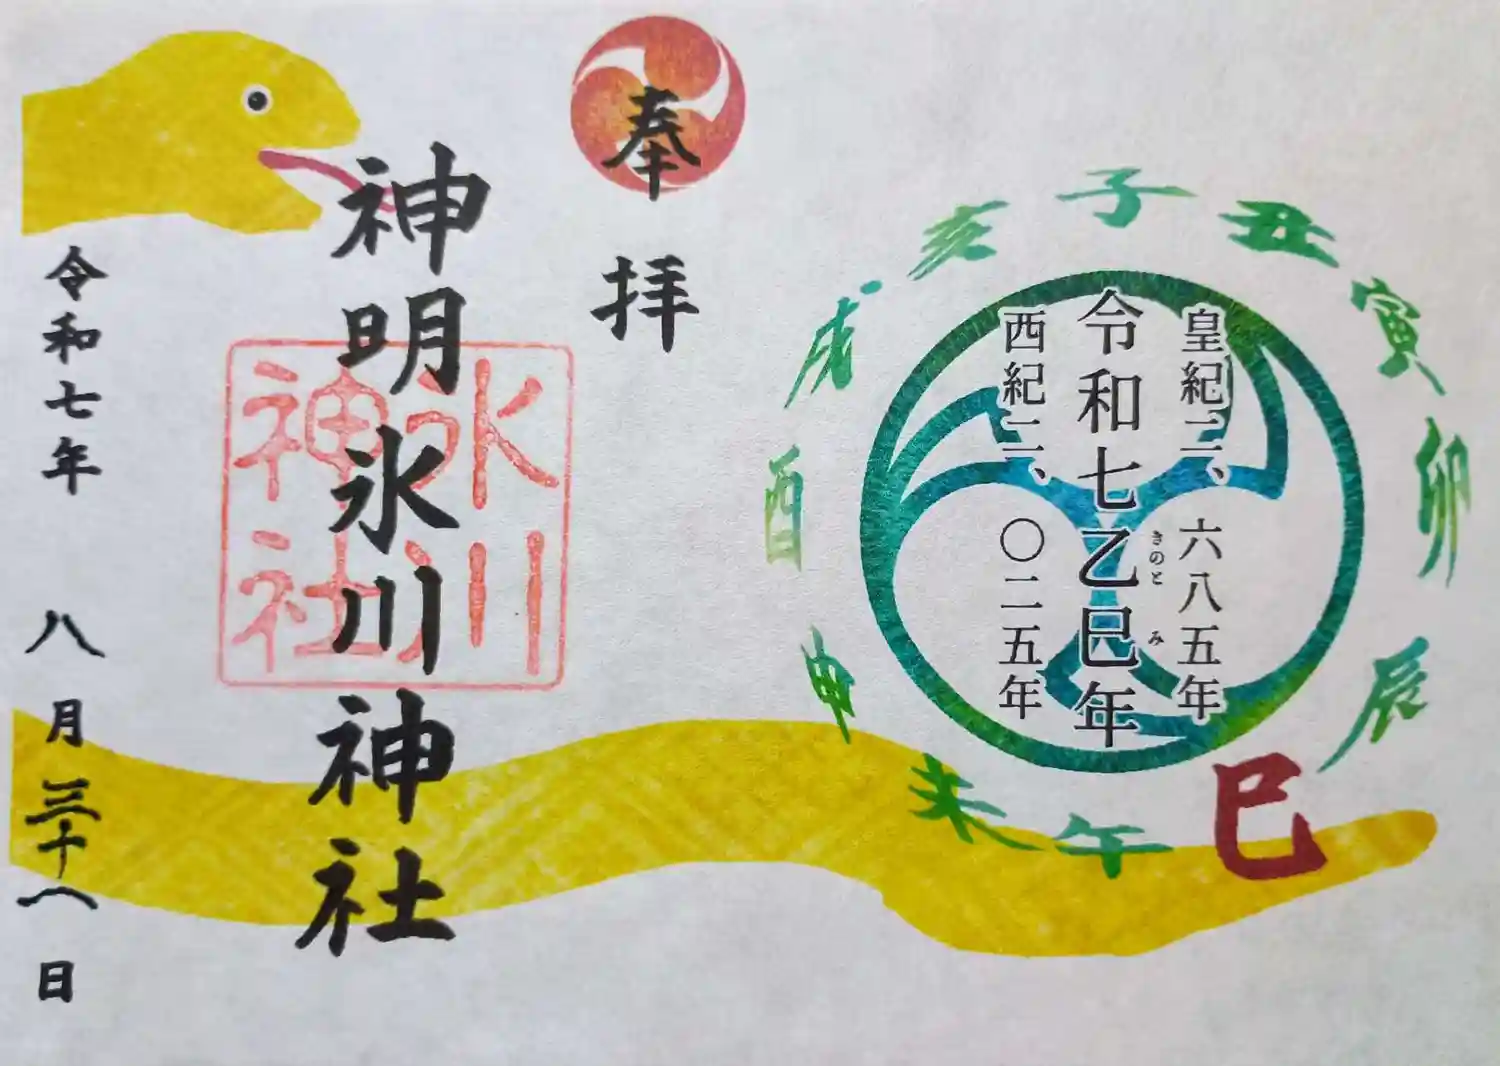 子
丑
寅
卯
辰
巳
午
未
申
酉
戌
亥
皇紀二、六八五年
令和七乙巳年
きのと み
西紀二、〇二五年
奉拝
神明氷川神社
氷川
神社
令和七年 八月 日